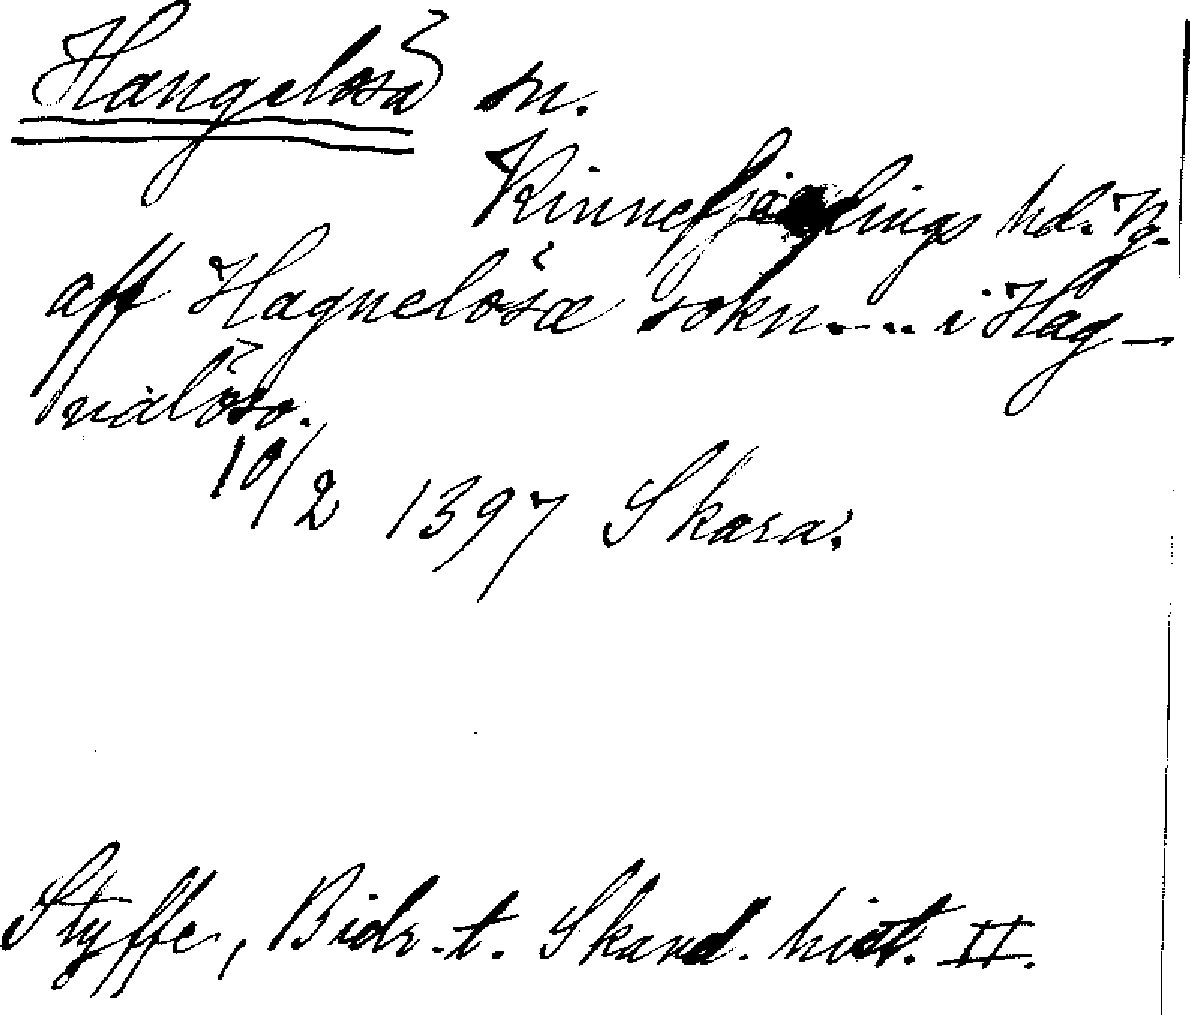 Hangelösa sn.
Kinnefjärdings hd. Vg.
aff Hagnelösæ sokn.... i Hag-
nalöso.
10/2 1397 Skara.
Styffe, Bidr. t. Skand. hist. II.